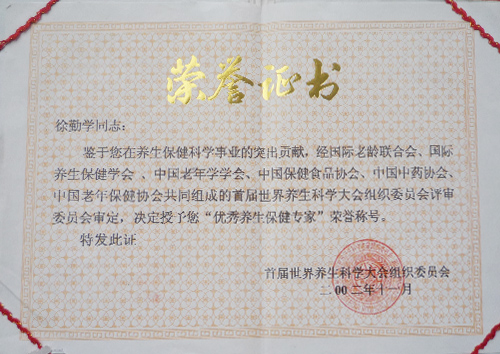 荣誉证书
徐勤学同志：
鉴于您在养生保健科学事业的突出贡献，经国际老龄联合会、国际
养生保健学会、中国老年学学会、中国保健食品协会、中国中药协会、
中国老年保健协会共同组成的首届世界养生科学大会组织委员会评审
委员会审定，决定授予您“优秀养生保健专家”荣誉称号。
特发此证
首届世界养生科学大会组织委员会
二00二年十一月